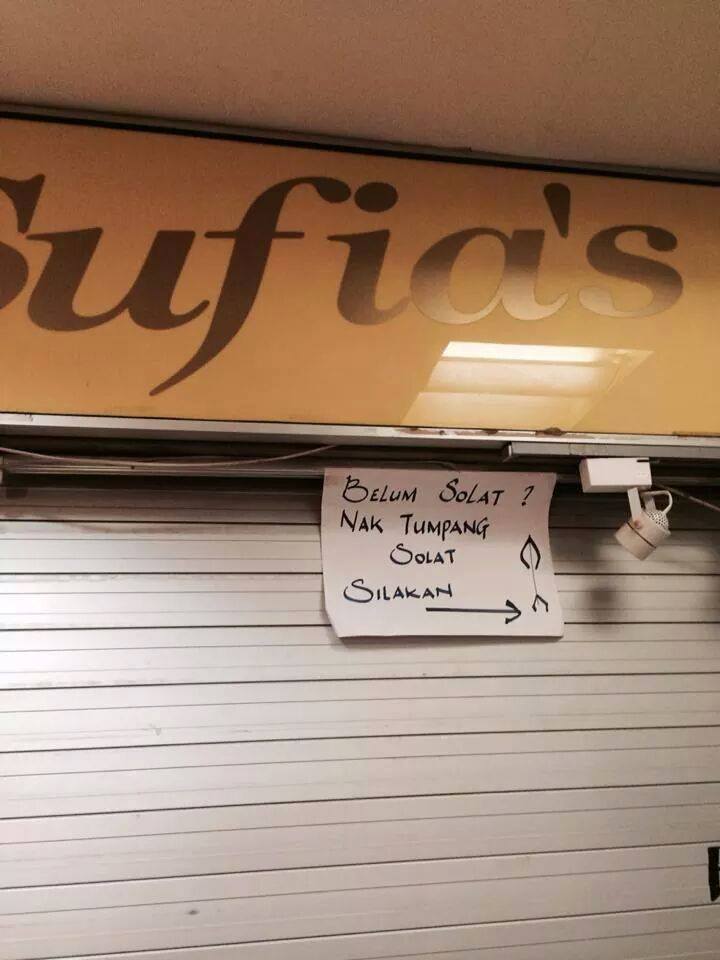 Sufia's
BELUM SOLAT ?
NAK TUMPANG
SOLAT
SILAKAN